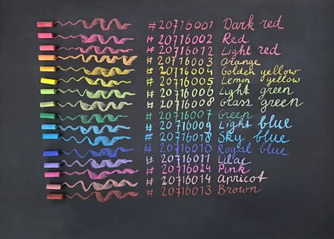 # 20716001 Dark red
# 20716002 Red
# 20716012 Light red
# 20716003 Orange
# 20716004 Golden yellow
# 20716005 Lemon yellow
# 20716006 Light green
# 20716008 Grass green
# 20716007 Green
# 20716009 Light blue
# 20716018 Sky blue
# 20716010 Royal blue
# 20716011 Lilac
# 20716024 Pink
# 20716014 Apricot
# 20716013 Brown